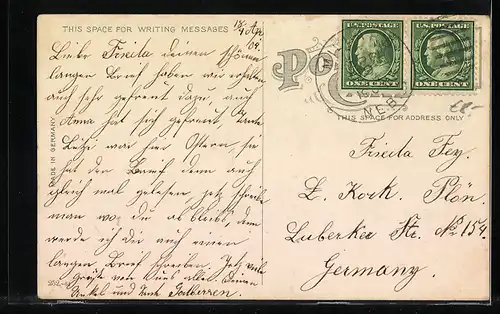 THIS SPACE FOR WRITING MESSAGES
18/4 Ap. 09.
Liebe Frieda deinen schönen
langen Brief haben wir erhalten
auch sehr gefreut dazu, auch
Anna hat sich gefreut, Tante
war hier Ostern, sie
hat den Brief denn auch
gleich mal gelesen, jetz schreibe
man wo du ab bleibst, denn
werde ich dir auch einen
langen Brief schreiben. Jetz viele
Grüße von uns allen. Deinen
Onkel und Tante
MADE IN GERMANY
PO
U.S. POSTAGE
ONE CENT
U.S. POSTAGE
ONE CENT
NEB.
THIS SPACE FOR ADDRESS ONLY
Frieda Fey.
Z. Kock. Plön.
Luberker Str. No 154.
Germany.